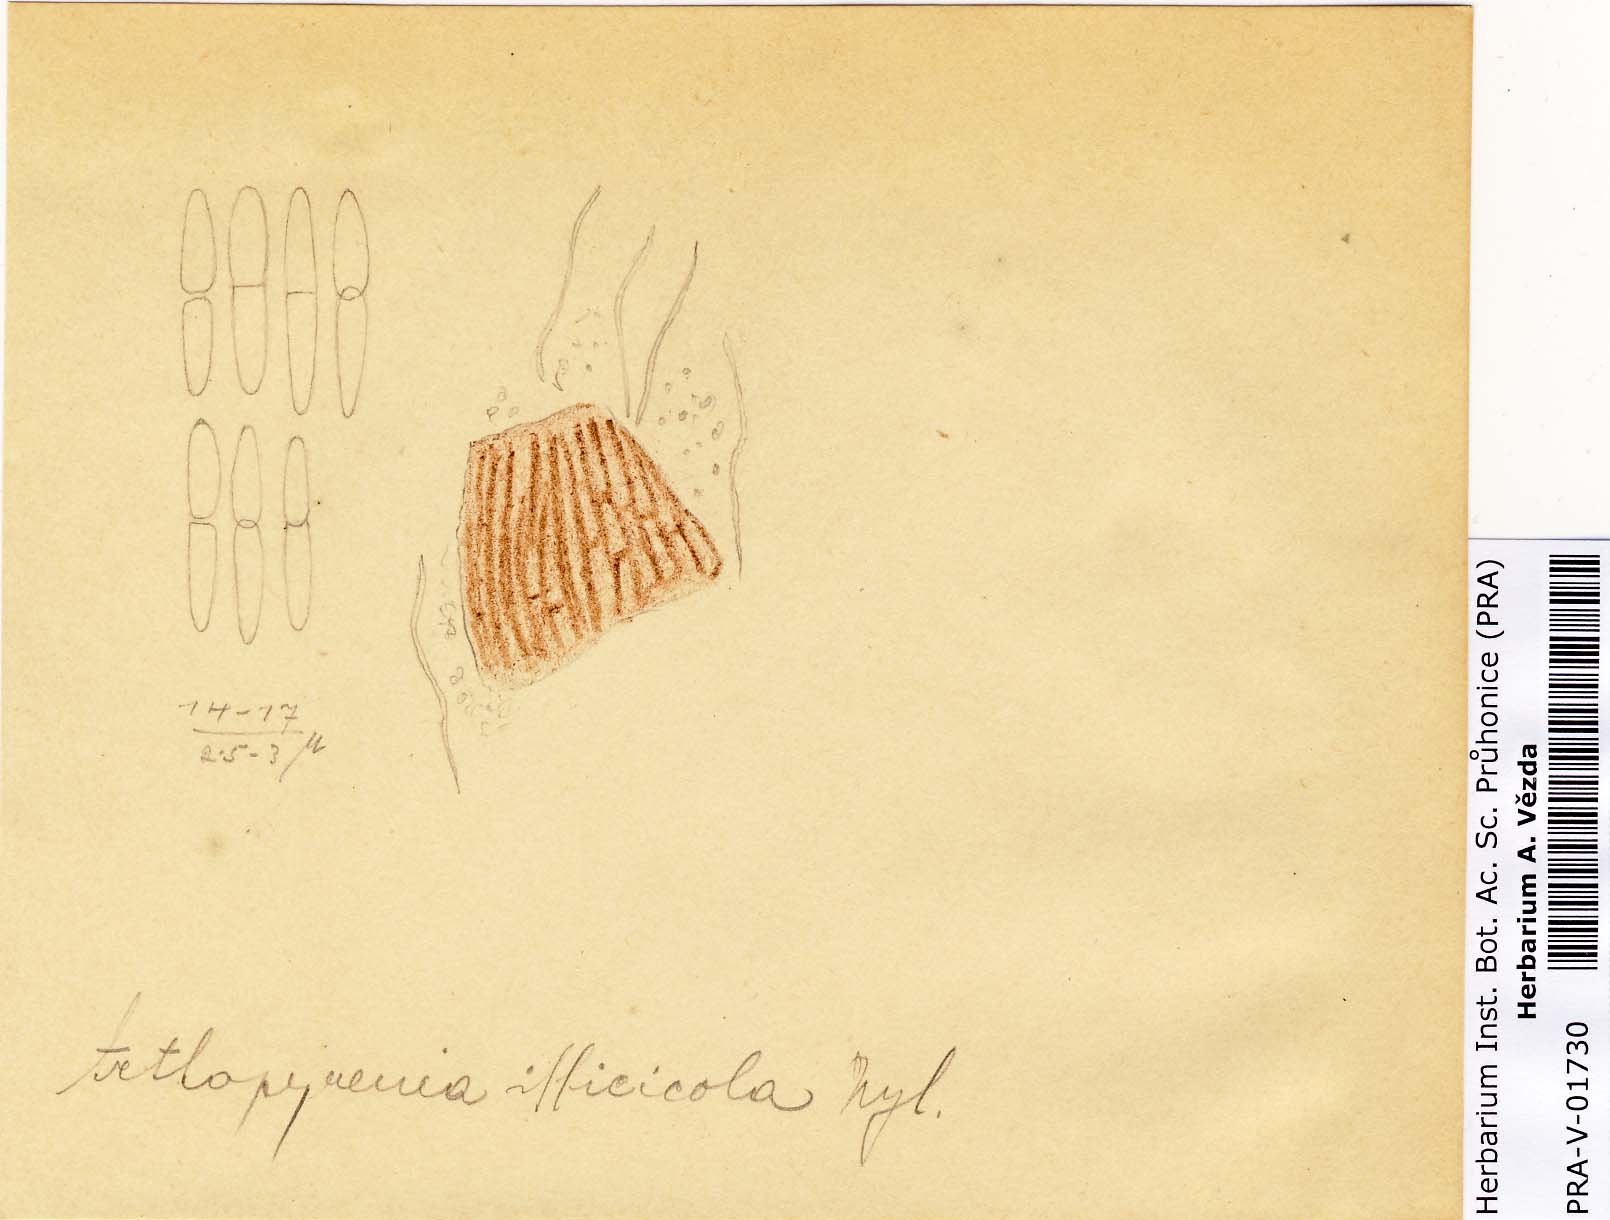 14-17
2.5-3 µ
Arthopyrenia illicicola Nyl.
Herbarium Inst. Bot. Ac. Sc. Průhonice (PRA)
Herbarium A. Vězda
PRA-V-01730